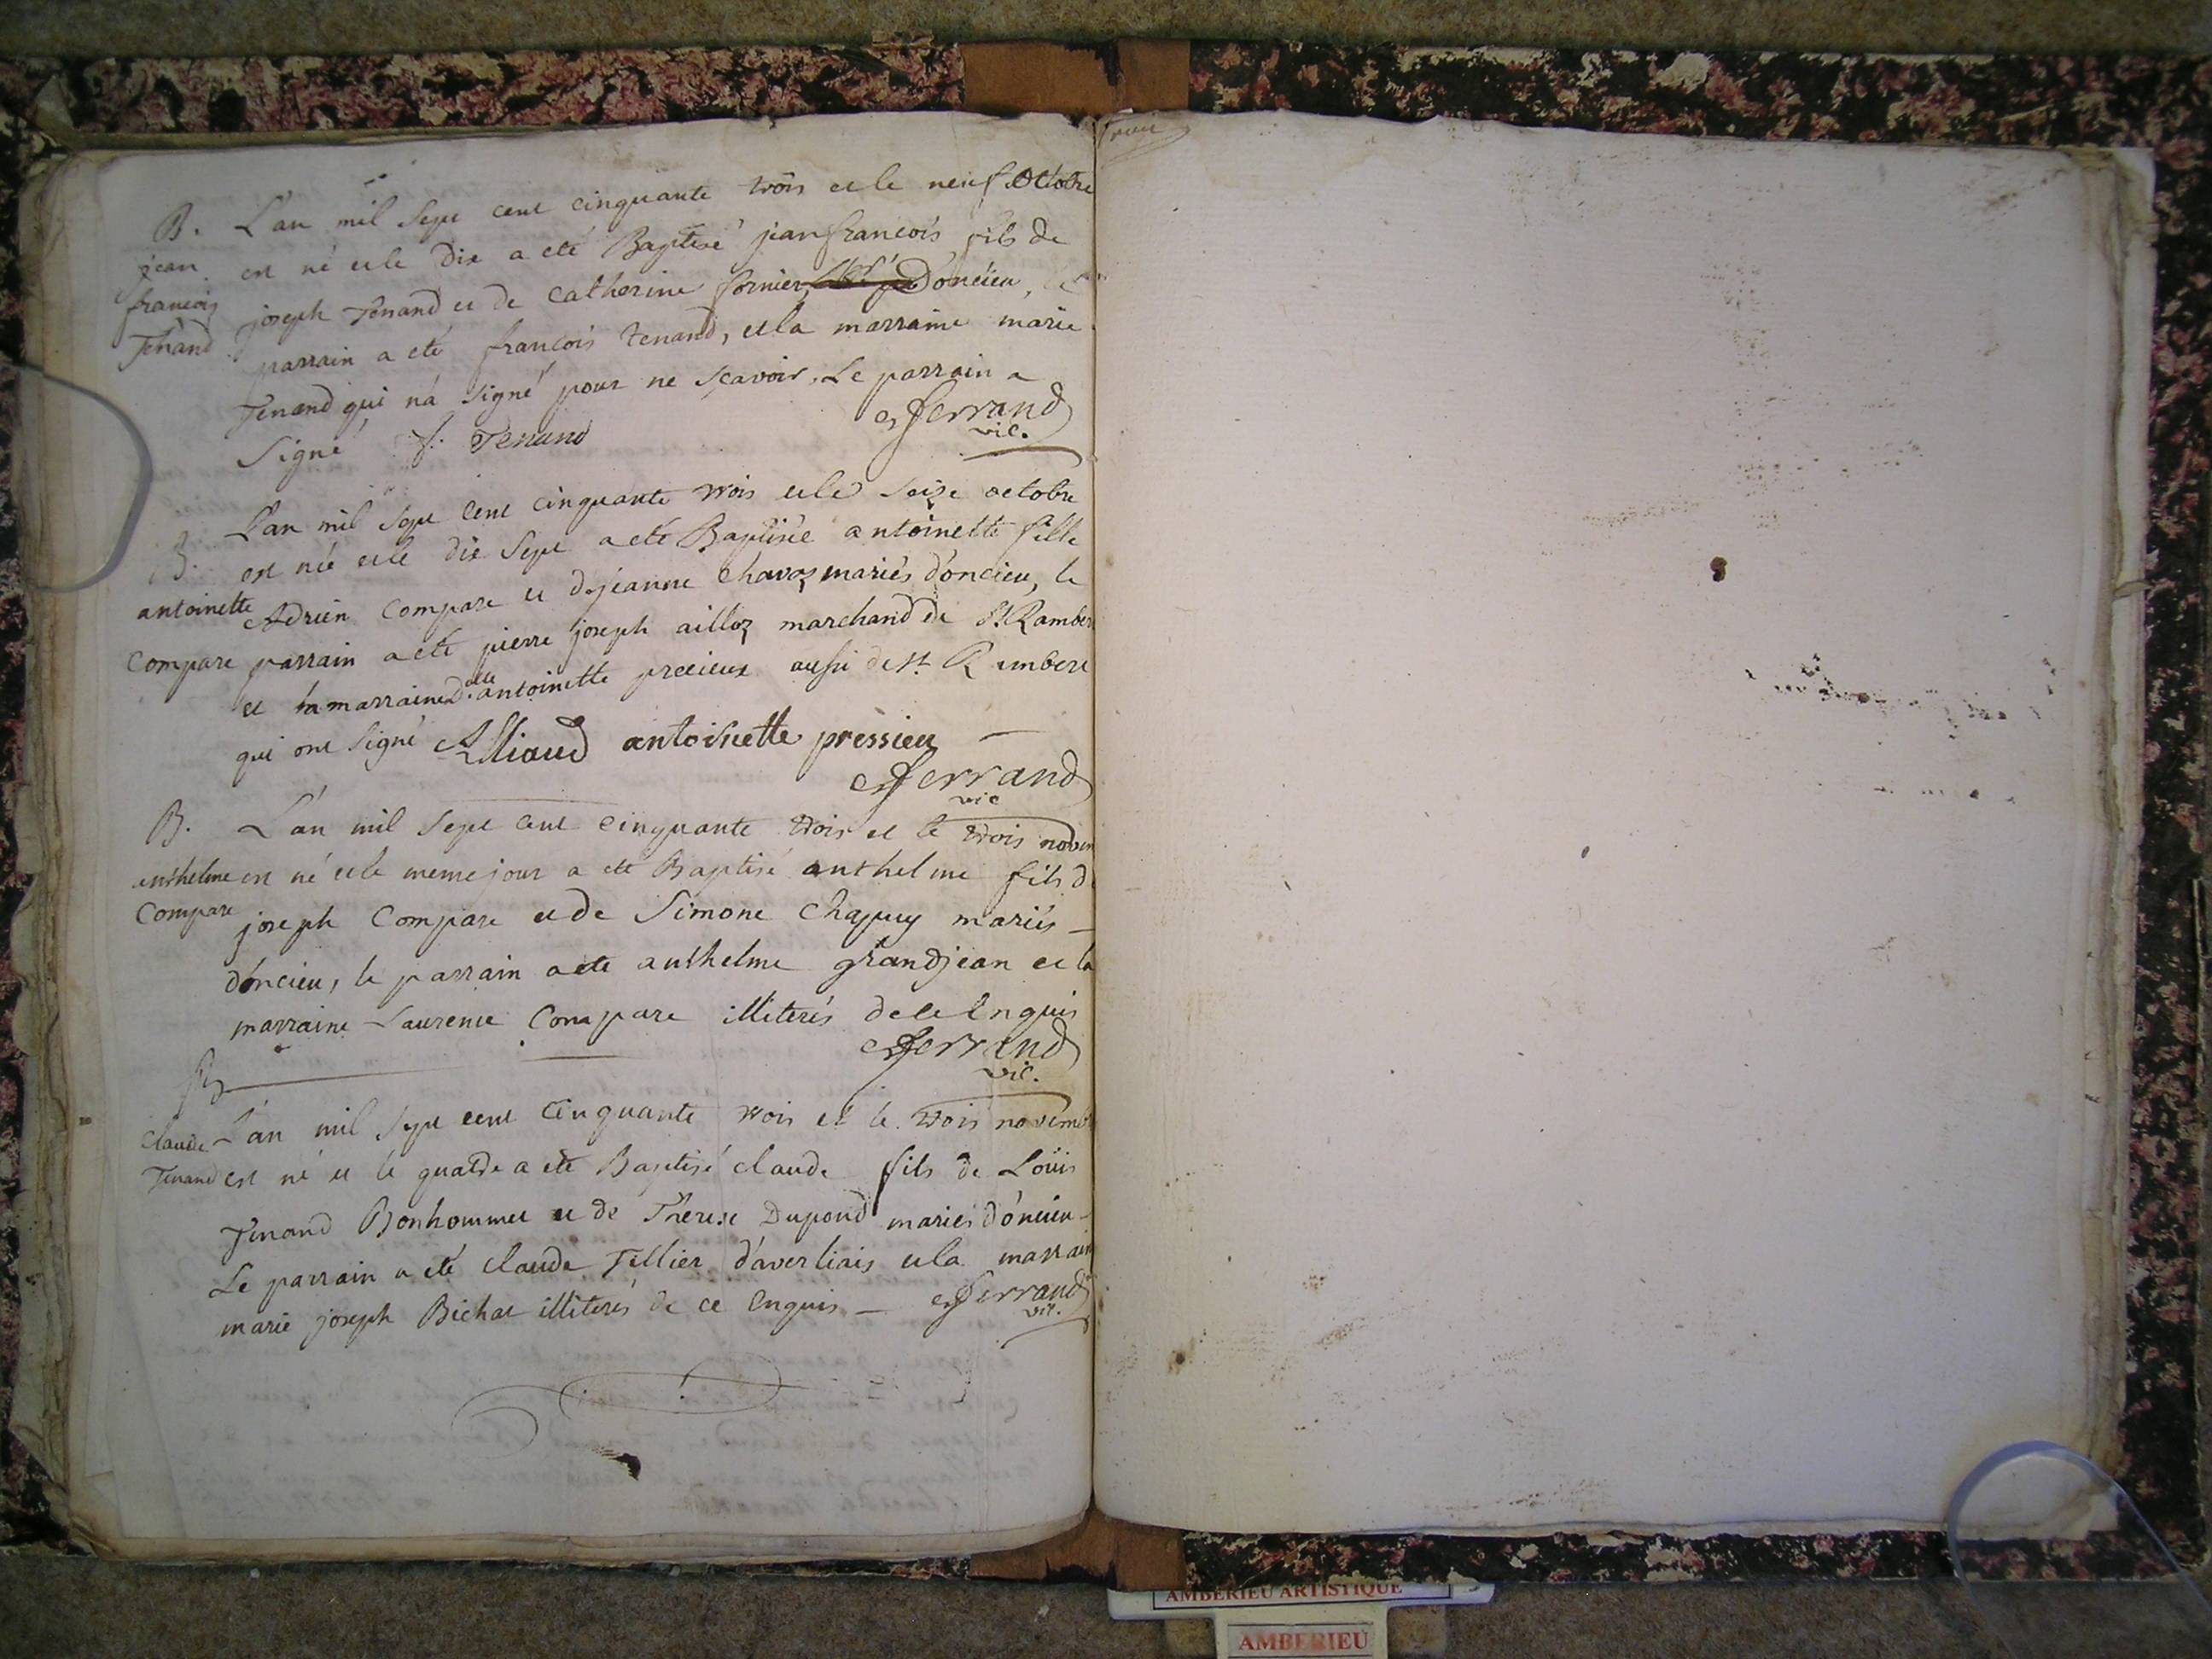 B. L'an mil sept cent cinquante trois et le neuf octobre
jean est né et le dix a eté Baptisé jean françois fils de
françois joseph Tenand et de Catherine fornier d'oncieu, le
Tenand parrain a eté françois tenand, et la marraine marie
Tenand qui n'a signé pour ne scavoir. Le parrain a
signé f. Tenand ferrand
vic.
B. L'an mil sept cent cinquante trois et le seize octobre
est née et le dix sept a eté Baptisée antoinette fille
antoinette Adrien Compare et de jeanne Chavoz mariés d'oncieu, le
Compare parrain a eté pierre joseph ailloz marchand de St Rambert
et la marraine dlle antoinette precieux aussi de st. Rambert
qui ont signé Alliaud antoinette pressieu
ferrand
vic
B. L'an mil sept cent cinquante trois et le trois novem
anthelme est né et le meme jour a eté Baptisé anthelme fils d
Compare joseph Compare et de Simone Chapuy mariés
d'oncieu, le parrain a eté anthelme grandjean et la
marraine Laurence Compare illiterés de ce Enquis
ferrand
vic.
B
Claude L'an mil sept cent cinquante trois et le trois novemb
Tenand est né et le quatre a eté Baptisé claude fils de Loüis
Tenand Bonhomme et de Therese Dupond mariés d'oncieu
Le parrain a eté Claude Tellier d'averliais et la marrain
marie joseph Bichat illiterés de ce Enquis ferrand
vic.
AMBERIEU ARTISTIQUE
AMBERIEU